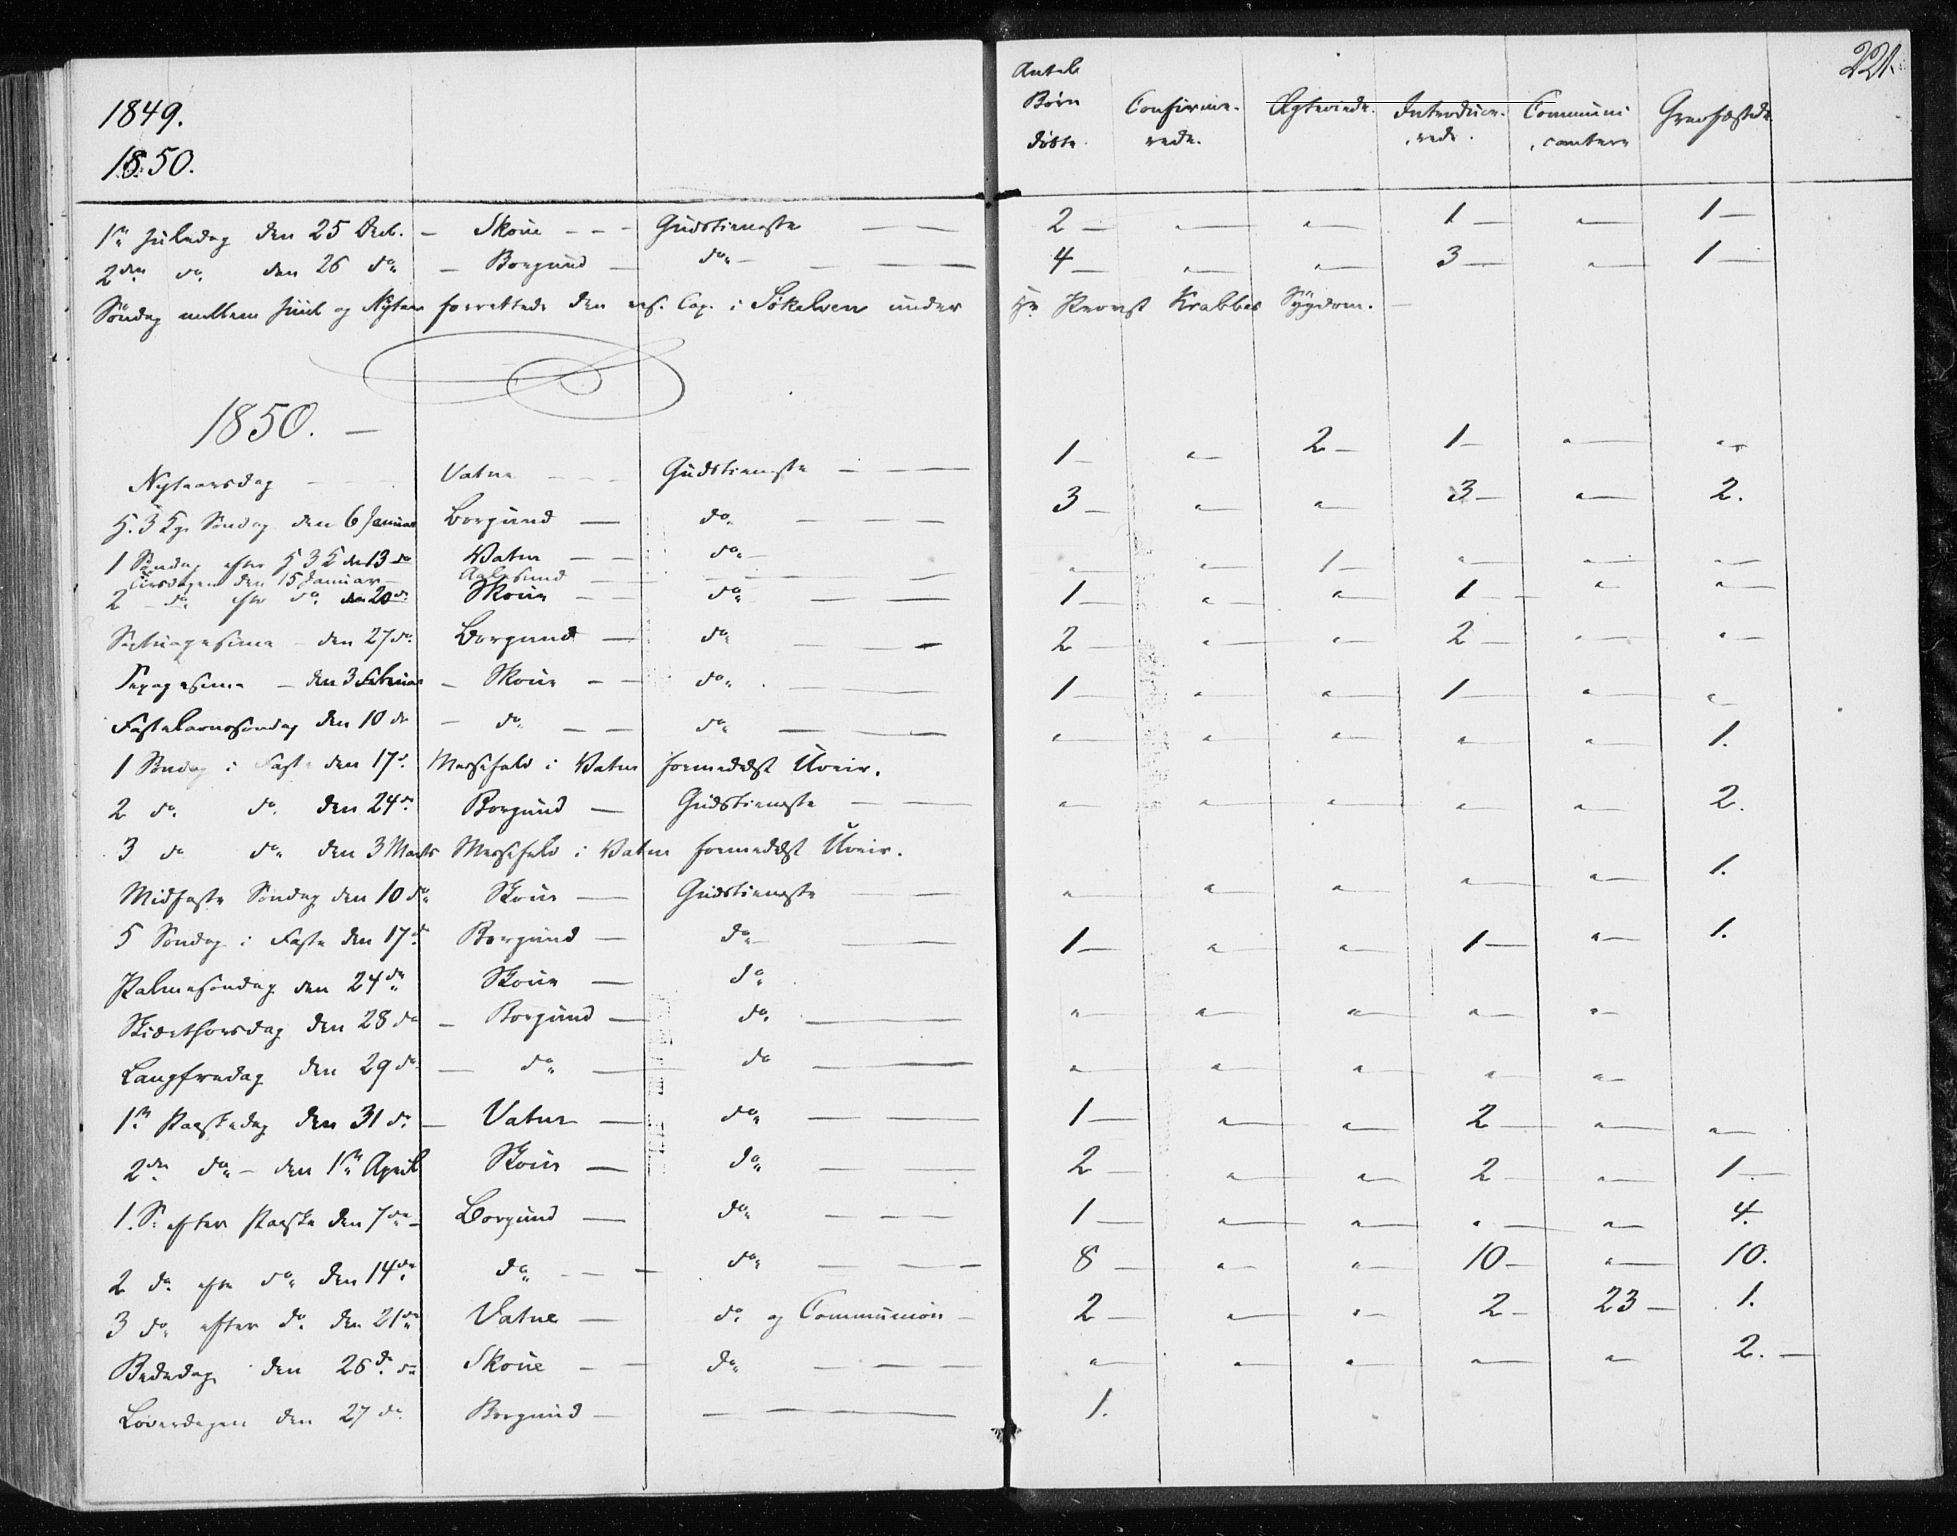 221.
1849.
1850.
Antal Børn døbte. Confirmerede. Ægteviede. Introducerede. Communicantere Gravfæstede
1n Juledag den 25 Decb. – Skoue – – – Gudstieneste — — 2 — „ — „ — 1 — „ — 1 —
2den do den 26 do – Borgund — do — — — 4 — „ — „ — 3 — „ — 1 —
Söndag mellem Juul og Nytaar forrettede den res. Cap. i Sökelven under Hr Provst Krabbes Sygdom. —
1850. —
Nytaarsdag – – – Vatne – – – Gudstieneste — — — 1 — „ — 2 — 1 — „ — „
H. 3 Kgr Söndag den 6 Januar Borgund — do — — — 3 — „ — „ — 3 — „ — 2.
1 Söndag efter H 3 K den 13 do Vatne — — do — „ — „ — 1 — „ — „ — „ —
Tirsdagen den 15 Januar — Aalesund — — — —
2 – do efter do den 20 do Skoue — — do — — — 1 — „ — „ — 1 — „ — „ —
Septuagesima – den 27 do. Borgund — do — — — 2 — „ — „ — 2 — „ — „ —
Sexagesima – den 3 Februar – Skoue – – do — — — 1 — „ — „ — 1 — „ — „
Fastelavnssöndag den 10 do – do — — do — — — „ — „ — „ — „ — „ — 1.
1 Söndag i Faste den 17 d. Messefald i Vatne formedelst Uveir.
2 do. do. den 24 do Borgund — Gudstieneste — — „ — „ — „ — „ — „ — 2.
3 do do den 3 Marts Messefald i Vatne formedelst Uveir.
Midfaste Söndag den 10 do Skoue — Gudstieneste — — „ — „ — „ — „ — „ — 1.
5 Söndag i Faste den 17 d. Borgund — do — — — 1 — „ — „ — 1 — „ — 1.
Palmesöndag den 24 do Skoue — do
Skiærthorsdag den 28 do – Borgund — do. — — „ — „ — „ — „ — „ —
Langfredag den 29 do — do — do — — „ — „ — „ — „ — „ —
1n Paaskedag den 31 d. — Vatne — do — — 1 — „ — „ — 2 — „ — „ —
2den do – den 1n April Skoue — do — — 2 — „ — „ — 2 — „ — 1. —
1. S. efter Paaske den 7 do – Borgund — do — — — 1 — „ — „ — „ — „ — 4.
2 do. efter do den 14 do do – – — do — — — 8 — „ — „ — 10 — „ — 10.
3 do efter do. den 21 do Vatne — do. og Communion — 2 — „ — „ — 2 — 23 — 1.
Bededag den 26 d. do Skoue – — do — — — „ — „ — „ — „ — „ — 2. —
Løverdagen den 27 do. Borgund — — — — — 1.